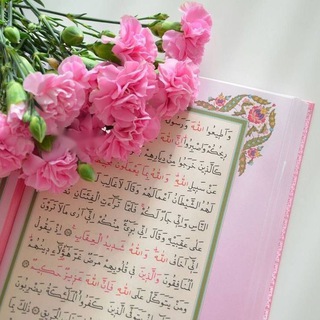 وَأَطِيعُوا اللَّهَ وَرَسُو
رِيحُكُمْ وَاصْبِرُوا إِنَّ اللَّهَ
كَالَّذِينَ خَرَجُوا مِنْ دِيَارِهِمْ
عَنْ سَبِيلِ اللَّهِ وَاللَّهُ بِمَا يَعْمَلُونَ
لَهُمُ الشَّيْطَانُ أَعْمَالَهُمْ وَقَالَ لَا غَالِبَ
النَّاسِ وَإِنِّي جَارٌ لَكُمْ فَلَمَّا تَرَاءَتِ الْفِئَتَانِ
عَلَى عَقِبَيْهِ وَقَالَ إِنِّي بَرِيءٌ مِنْكُمْ إِنِّي أَرَى مَا لَا تَرَوْنَ
إِنِّي أَخَافُ اللَّهَ وَاللَّهُ شَدِيدُ الْعِقَابِ إِذْ يَقُولُ
الْمُنَافِقُونَ وَالَّذِينَ فِي قُلُوبِهِمْ مَرَضٌ غَرَّ هَٰؤُلَاءِ دِينُهُمْ
وَمَنْ يَتَوَكَّلْ عَلَى اللَّهِ فَإِنَّ اللَّهَ عَزِيزٌ حَكِيمٌ
الَّذِينَ كَفَرُوا الْمَلَائِكَةُ يَضْرِبُونَ